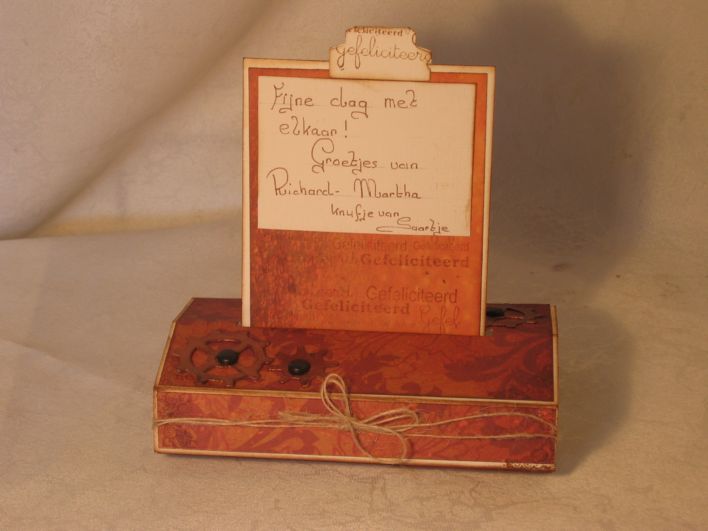 gefeliciteerd
Fijne dag met
elkaar!
Groetjes van
Richard- Martha
knufje van
Saartje
Gefeliciteerd Gefeliciteerd
Gefeliciteerd
Gefeliciteerd
Gefeliciteerd
Gefel